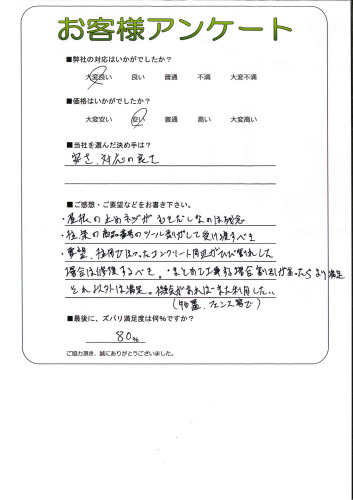 お客様アンケート
■弊社の対応はいかがでしたか?
大変良い 良い 普通 不満 大変不満
■価格はいかがでしたか?
大変安い 安い 普通 高い 大変高い
■当社を選んだ決め手は?
安さ、対応の良さ
■ご感想・ご要望などをお書き下さい。
・屋根の止めネジがむきだしなのは残念
・柱、梁の商品番号のシールをはがして受け渡すべき
・要望、柱用でほったコンクリート周辺がひび割れした
場合は修復するべき。・まとめて工事する場合割引があったらより満足
それ以外は満足。機会があればまた利用したい。
(物置、フェンス等で)
■最後に、ズバリ満足度は何%ですか?
80%
ご協力頂き、誠にありがとうございました。